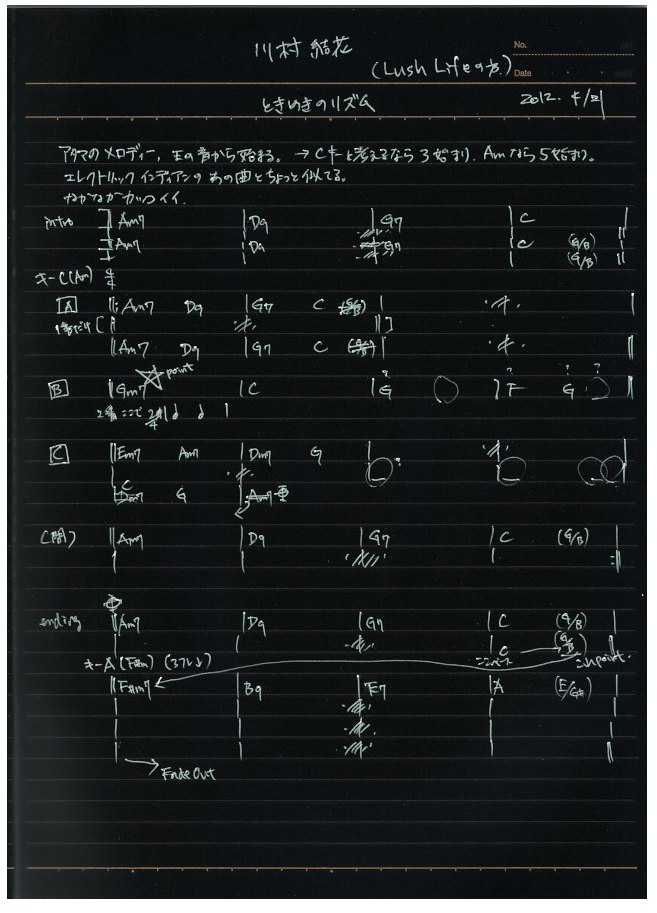 川村結花
(Lush Lifeの方)
No.
Date
ときめきのリズム
2012. 4/
アタマのメロディー, 王の音から始まる。→ Cキーと考えるなら3始まり. Amなら5始まり。
エレクトリック インディアンの あの曲とちょっと似てる。
なかなかカッコイイ.
intro Am7 D9 G7 C
Am7 D9 G7 C (G/B)
(G/B)
キーC(Am) 4/4
A Am7 D9 G7 C (G/B)
1番だけ [ ]
Am7 D9 G7 C (G/B)
point
? ? ?
B Gm7 C G F G
2番 ここで 2/4
C Em7 Am Dm7 G ?
C
Dm7 G Am
(間) Am7 D9 G7 C (G/B)
ending Am7 D9 G7 C (G/B)
C G/B
キーA (F#m) (3フレ↓) point.
F#m7 B9 E7 A (E/G#)
Fade Out